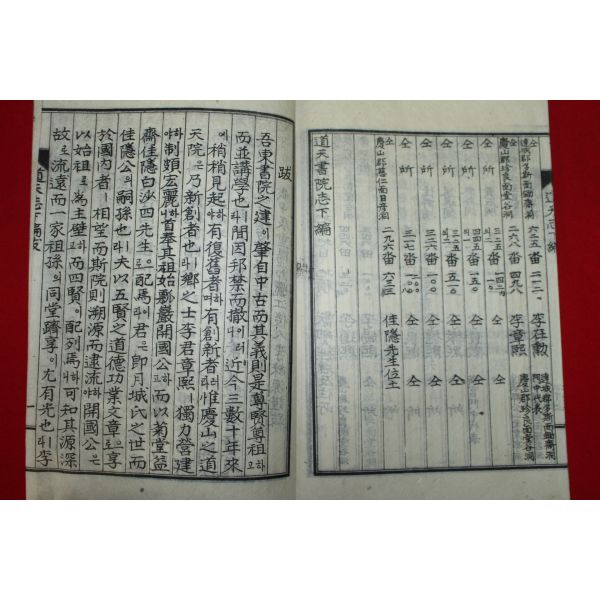 道天志下編
仝 達城郡多斯面鋤齋洞 六二五番 二一二 李在勳 達城郡多斯面鋤齋洞 門中代表
仝 慶山郡珍良面堂谷洞 二六八番 四九八 李章熙 慶山郡珍良面堂谷洞
仝 所 三二五番 一四二〇 仝 仝
仝 所 番 仝 仝
仝 所 番 仝 仝
仝 所 番 仝 仝
仝 所 番 仝 仝
仝 慶山郡慈仁面日彦洞 二九六番 六三三 佳隱先生位土
道天書院志下編
跋
吾東書院之建이肇自中古而其義則是尊賢尊祖하고
而並講學也라間因邦禁而撤이러니近今三數十年來
에稍稍見起하야有復舊者하며有創新者러라惟慶山之道
天院은乃新創者也라鄕之士李君章熙ㅣ獨力營建
하야制頗宏麗하니首奉其祖始瓢巖開國公하고而以菊堂益
齋佳隱白沙四先生으로配焉이라君은卽月城氏之世而
佳隱公의嗣孫也라夫以五賢之道德功業文章으로享
於國內者ㅣ相望而斯院則溯源而逮流하야開國公은
以始祖로爲主壁고而四賢이配列焉하니可知其源深
故로流遠而一家祖孫의同堂躋享이尤有光也라李
道天志下編跋 一